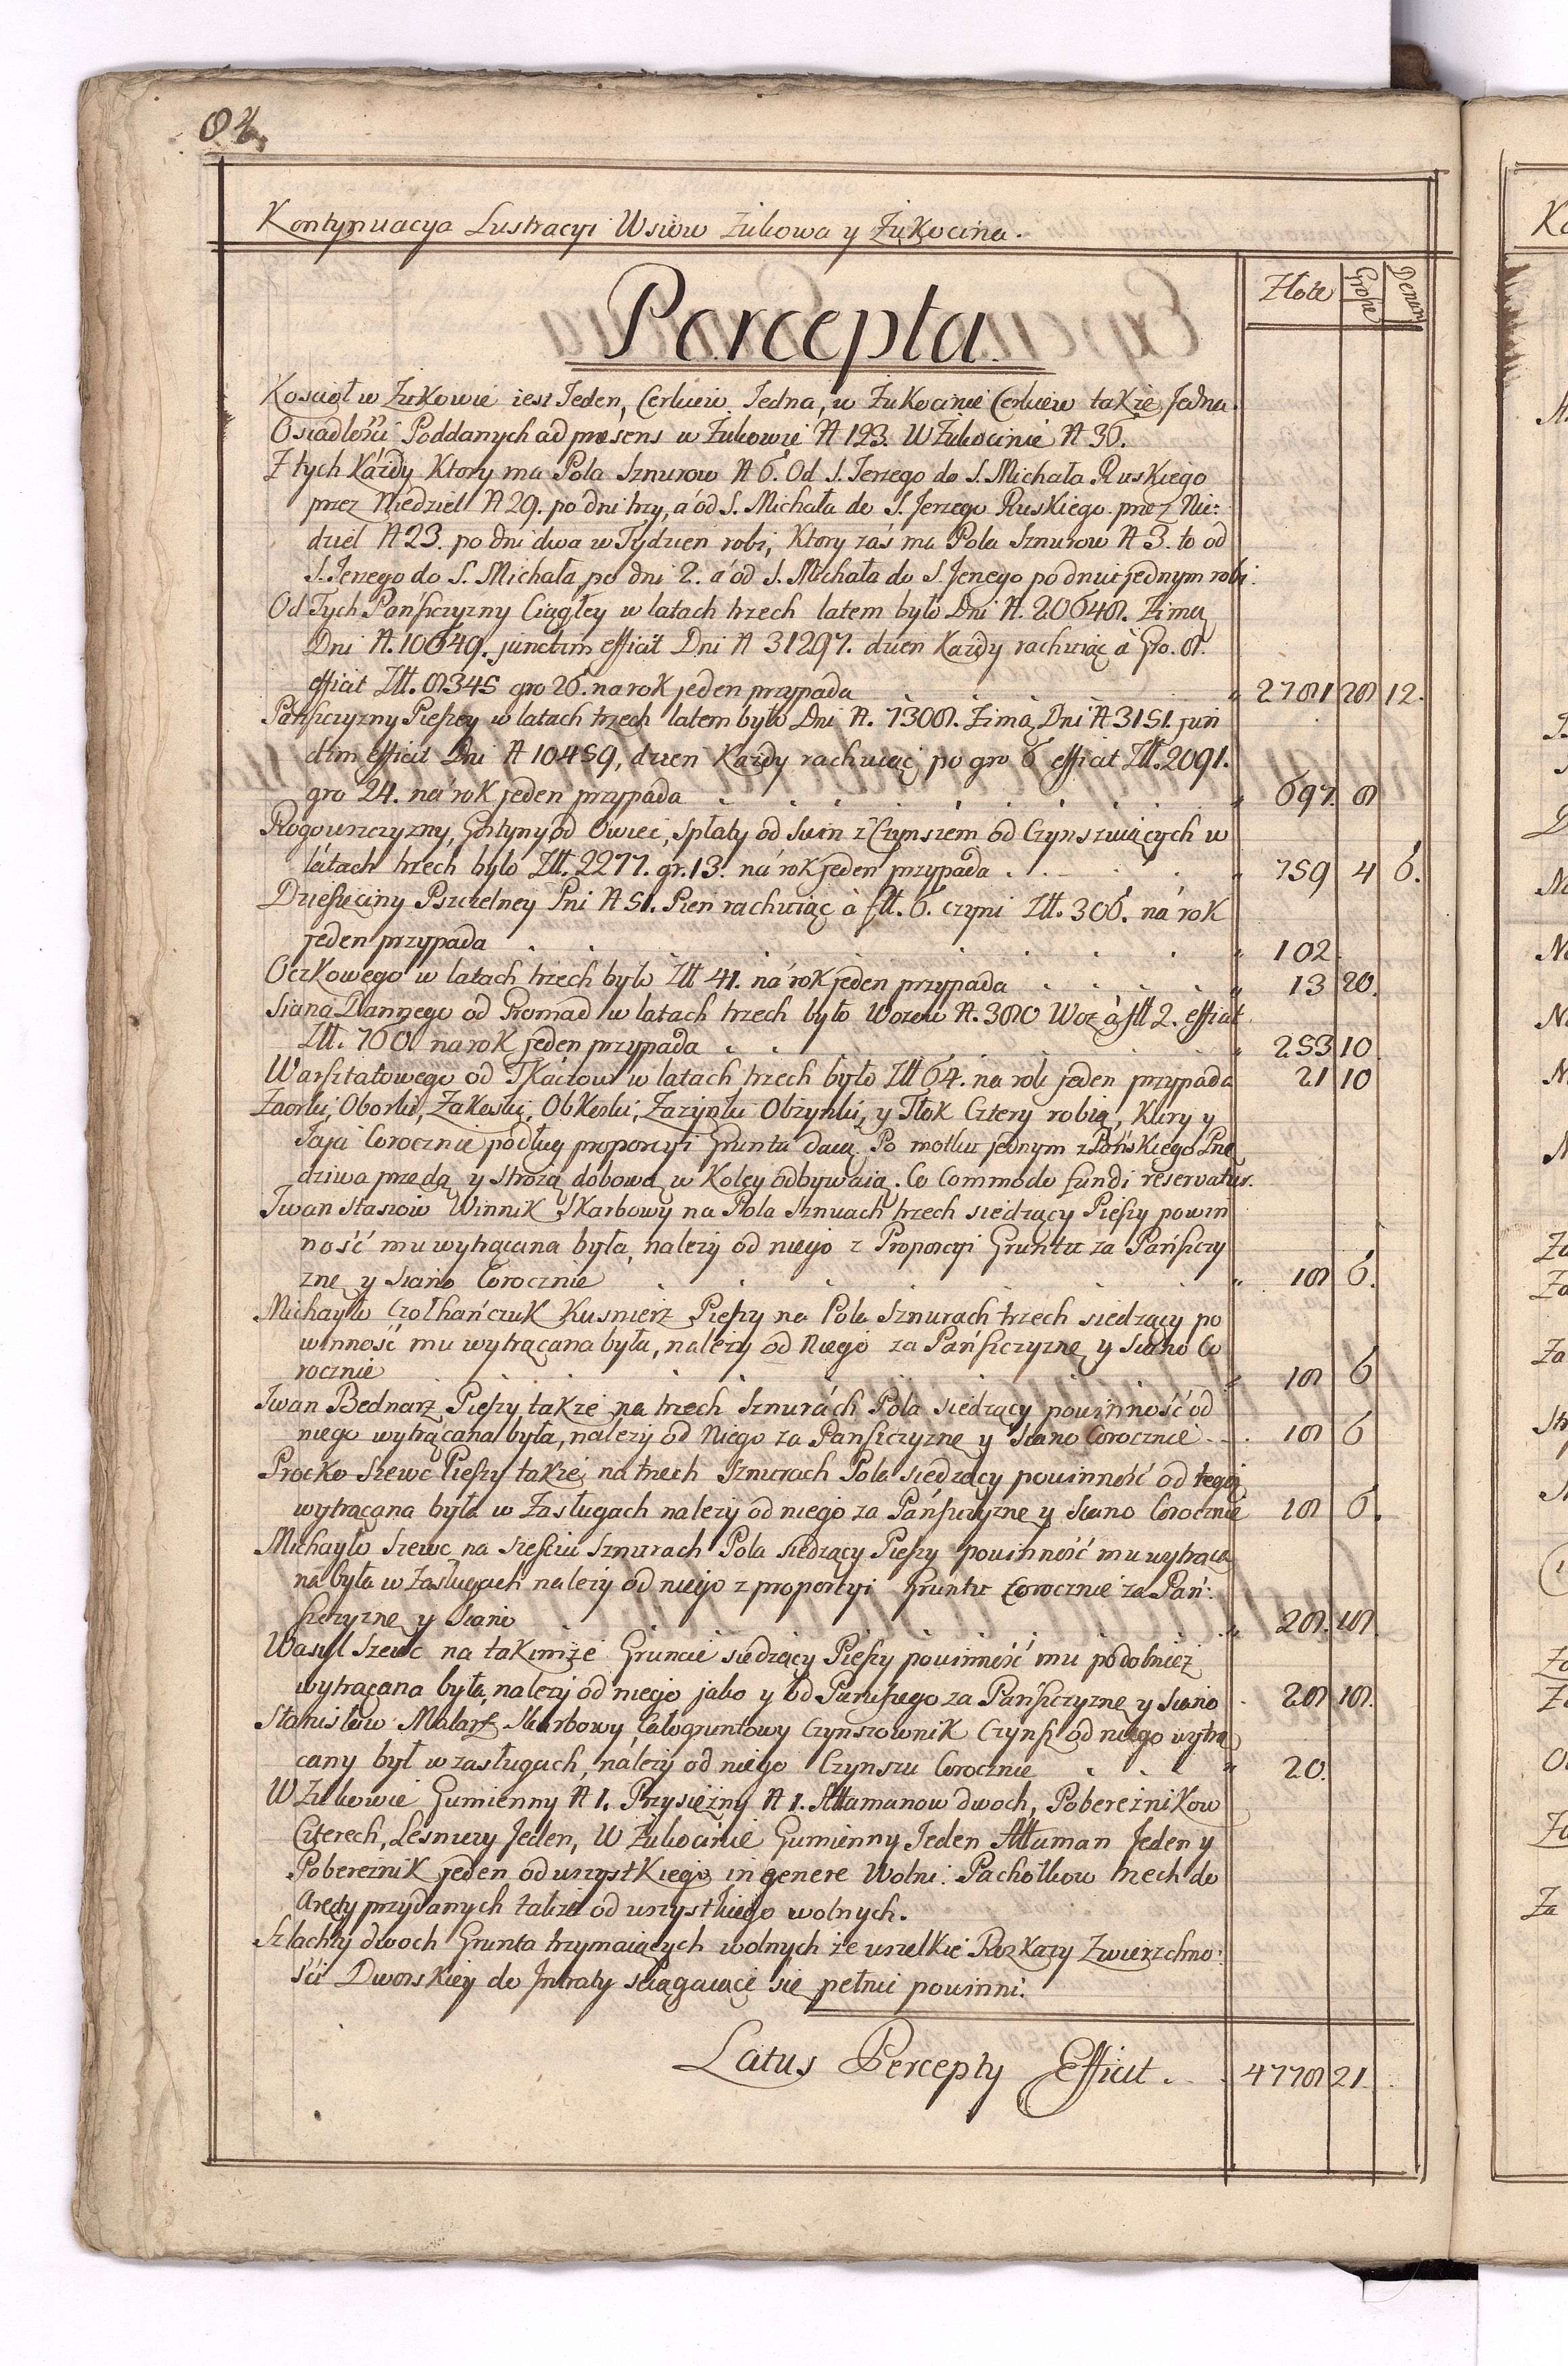 84.
Kontynuacya Lustracyi Wsiow Żukowa y Żukocina.
Złote Grosze Denary
Percepta
Kosciół w Żukowie iest Jeden, Cerkiew Jedna, w Żukocinie Cerkiew także Jedna.
Osiadłości Poddanych ad præsens w Żukowie N 123. W Żukocinie N 36.
Z tych Każdy Ktory ma Pola Sznurow N 6. Od S. Jerzego do S. Michała Ruskiego
przez Niedziel N 29. po dni trzy, a od S. Michała do S. Jerzego Ruskiego przez Nie:
dziel N 23. po dni dwa w Tydzien robi, Ktory zaś ma Pola Sznurow N 3. to od
S. Jerzego do S. Michała po dni 2. a od S. Michała do S. Jerzego po dniu jednym robi.
Od Tych Pańszczyzny Ciągłey w latach trzech latem było Dni N. 20648. Zimą
Dni N. 10649. junctim efficit Dni N 31297. dzien Każdy rachuiąc à Gro. 8.
efficit Złł. 8345 gro 26. na rok jeden przypada " 2781 28 12.
Pańszczyzny Pieszey w latach trzech latem było Dni N. 7308. Zimą Dni N 3151. jun
ctim efficit Dni N 10459, dzien Każdy rachuiąc po gro 6 efficit Złł. 2091.
gro 24. na rok jeden przypada " 697. 8
Rogowszczyzny, Gostyny od Owiec, Spłaty od Swin z Czynszem od Czynszuiących w
latach trzech było Złł. 2277. gr. 13. na rok jeden przypada " 759 4 6.
Dziesięciny Pszczelney Pni N 51. Pień rachuiąc à złł. 6. czyni Złł. 306. na rok
jeden przypada " 102.
Oczkowego w latach trzech było Złł 41. na rok jeden przypada " 13 20.
Siana Dannego od Gromad w latach trzech było Wozow N. 380 Woz à złł 2. efficit
Złł. 760. na rok jeden przypada " 253 10
Warsztatowego od Tkaczow w latach trzech było Złł 64. na rok jeden przypada 21 10
Zaorki, Oborki, Zakoski, Obkoski, Zażynki Obżynki, y Tłok Cztery robią, Kury y
Jaja Corocznie podług proporcyi Gruntu daią. Po motku jednym z Pańskiego Prze
dziwa przędą y stroża dobową w Koley odbywaią. Co Commodo Fundi reservatur.
Iwan Stasiow Winnik Skarbowy na Pola Sznuach trzech siedzący Pieszy powin
ność mu wytrącana była, należy od niego z Proporcyi Gruntu za Pańszczy
znę y Siano Corocznie " 18 6.
Michayło Kusnierz Pieszy na Pola Sznurach trzech siedzący po
winność mu wytrącana była, należy od Niego za Pańszczyznę y Siano Co
rocznie " 18 6
Iwan Bednarz Pieszy także na trzech Sznurách Pola siedzący powinność od
niego wytrącana była, należy od Niego za Pańszczyznę y Siano Corocznie 18 6
Procko Szewc Pieszy także na trzech Sznurach Pola siedzący powinność od tegoż
wytrącana była w Zasługach należy od niego za Pańszczyznę y Siano Corocznie 18 6.
Michayło Szewc na Sześciu Sznurach Pola siedzący Pieszy powinność mu wytrąca
na była w Zasługach należy od niego z proporcyi Gruntu Corocznie za Pań:
szczyznę y Siano " 28. 18.
Wasyl Szewc na takimże Gruncie siedzący Pieszy powinność mu podobnież
wytrącana była, należy od niego jako y od Pierwszego za Pańszczyznę y Siano 28 18.
Stanisław Malarz Skarbowy Całogruntowy Czynszownik Czynsz od niego wytrą
cany był w zasługach, należy od niego Czynszu Corocznie " 20.
W Żukowie Gumienny N 1. Przysiężny N 1. Attamanow dwoch, Pobereżnikow
Czterech, Lesniczy Jeden, W Żukocinie Gumienny Jeden Attaman Jeden y
Pobereżnik jeden od wszystkiego in genere Wolni. Pachołkow trzech do
Arędy przydanych także od wszystkiego wolnych.
Szlachty dwoch Grunta trzymaiących wolnych że wszelkie Rozkazy Zwierzchno:
ści Dworskiey do Intraty sciągaiące się pełnić powinni.
Latus Percepty Efficit 4778 21.